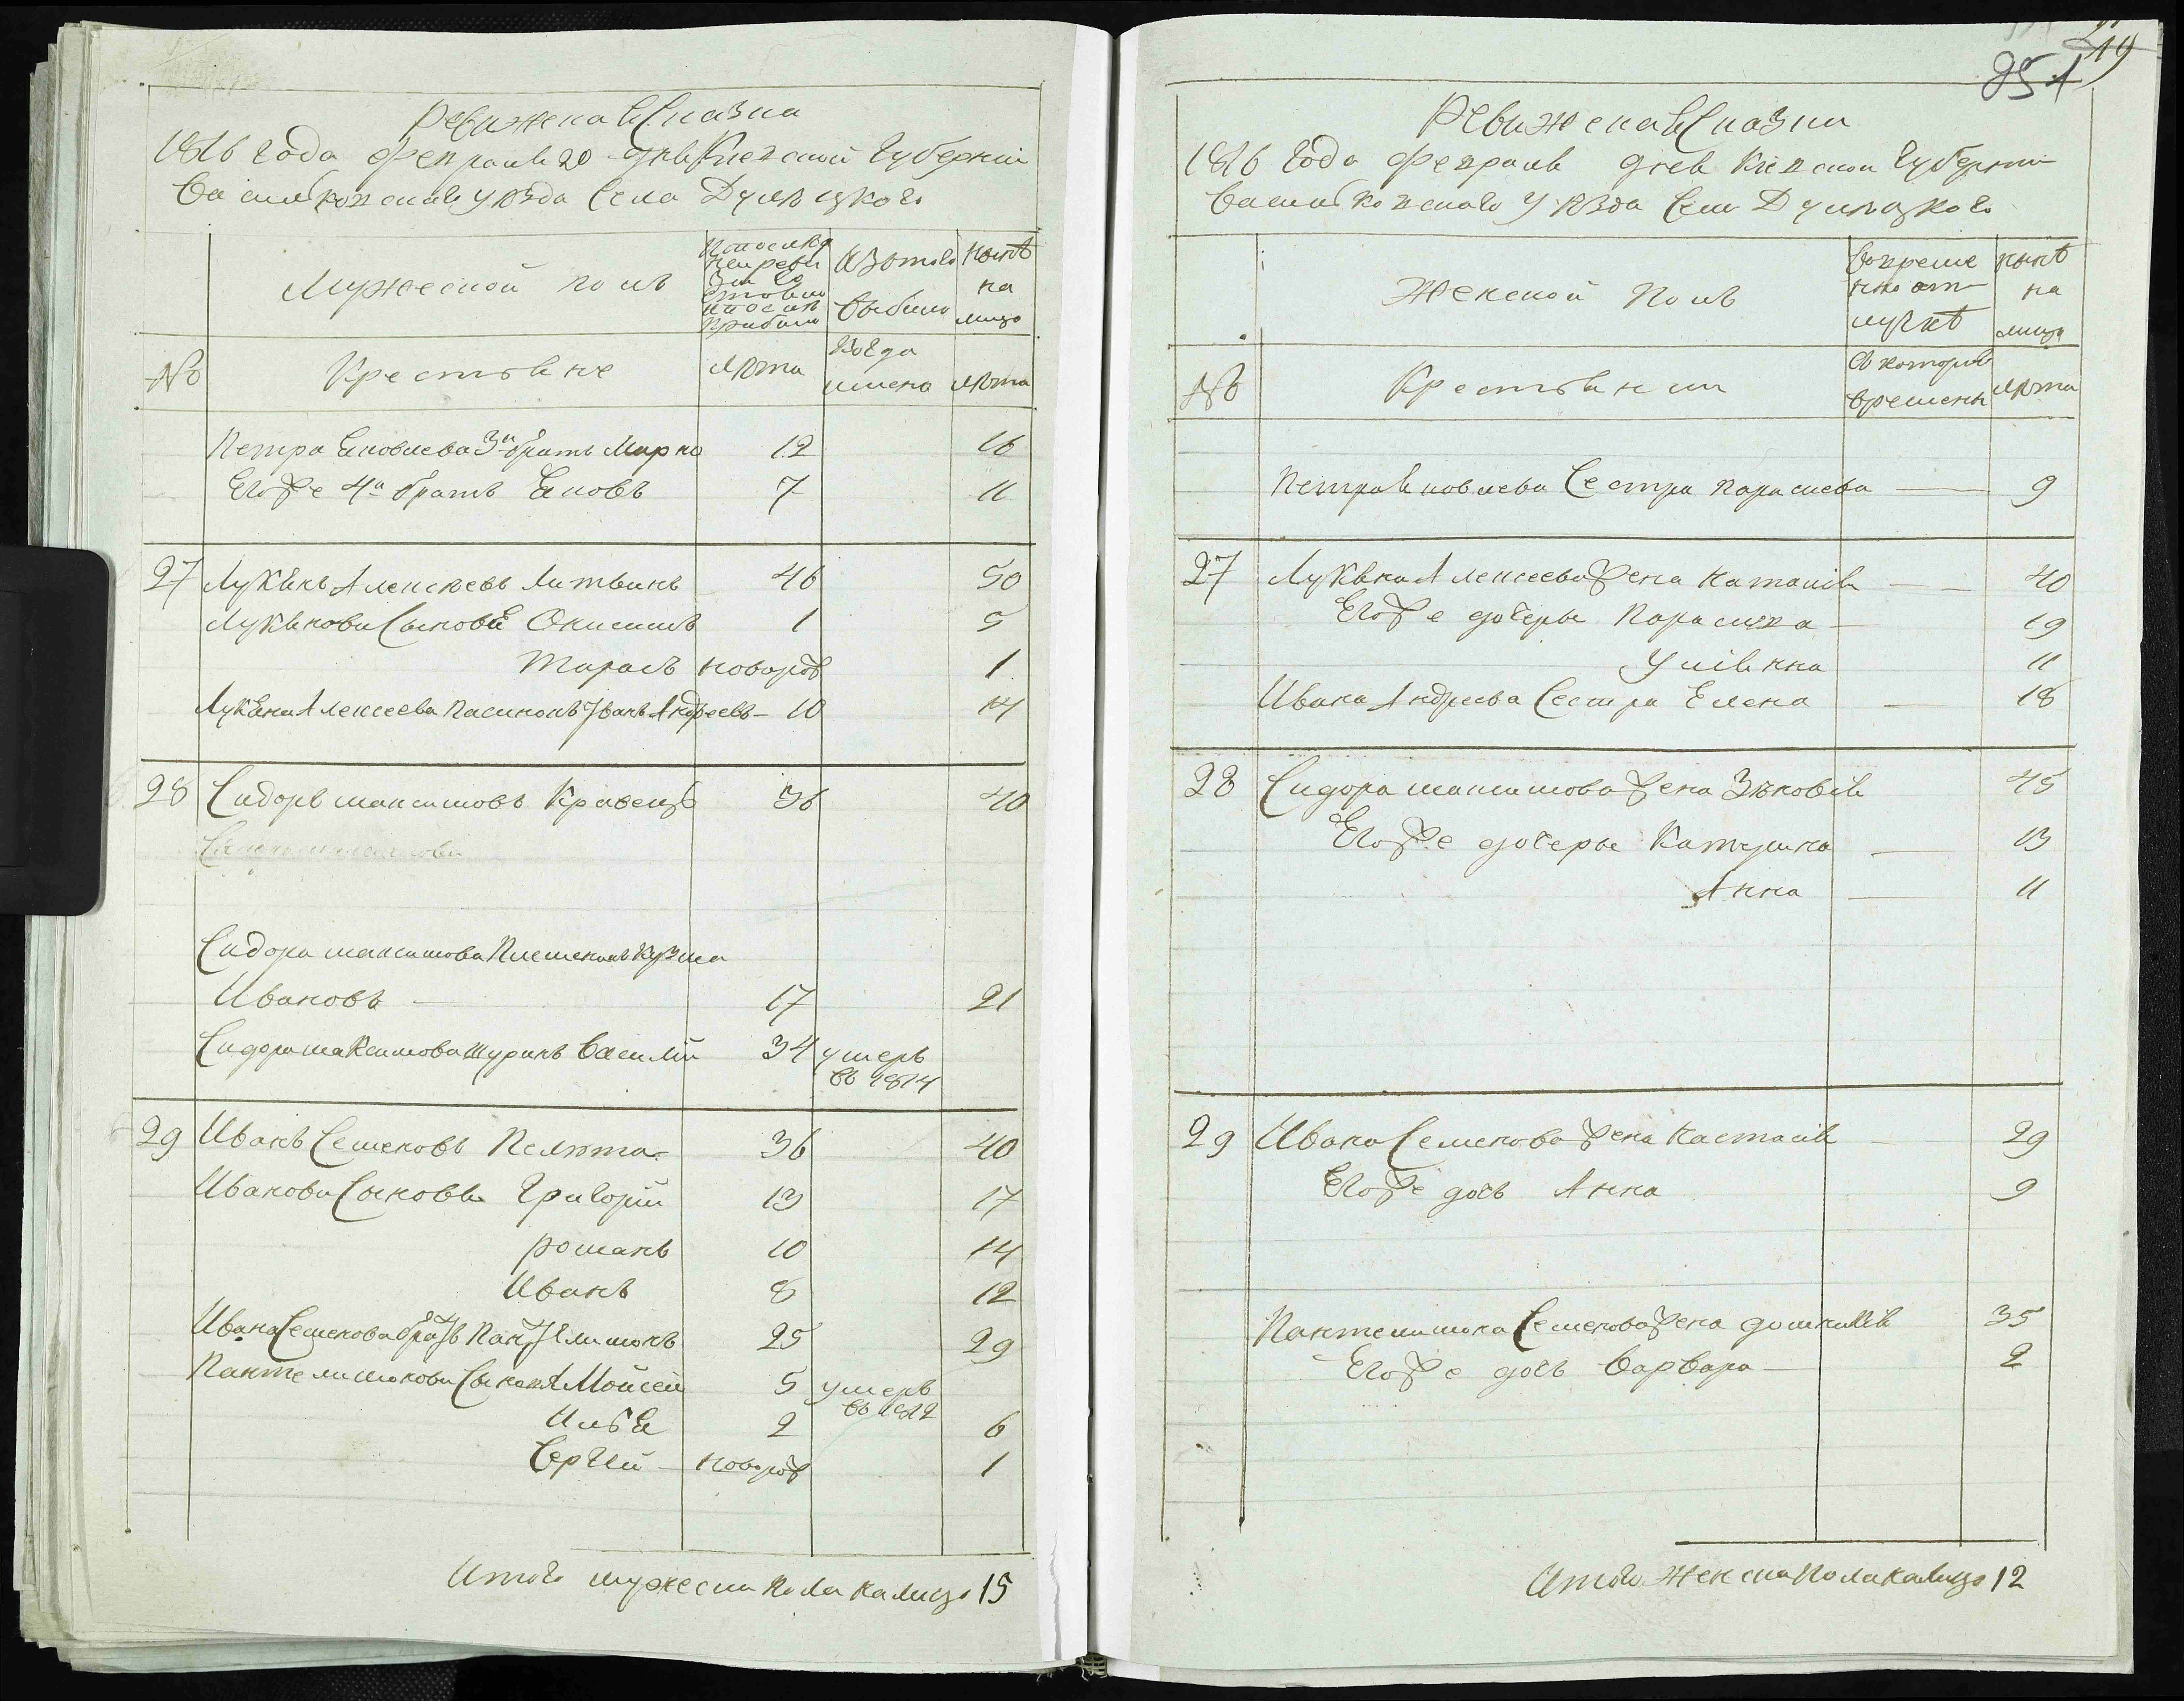 Ревижская Сказка
1816 года февраля 20 дня Киевской Губернии
Василковскаго уезда Села Дулецкого
Мужеской полъ
Изтого выбыло
Нынѣ на лицо
№ Крестьяне лѣта Когда имена лѣта
Петра Яковлева 3й братъ Марко 12 16
Егоже 4й братъ Яковъ 7 11
27 Лукянъ Алексеевъ Литвинъ 46 50
Лукяновы Сыновя Онисимъ 1 5
Тарасъ новорож 1
Лукяна Алексеева Пасинокъ Иванъ Андреевъ 10 14
28 Сидоръ Максимовъ Кравецъ 36 40
Сидора Максимова Племеникъ Кузма
Ивановъ 17 21
Сидора Максимова Шуринъ Василий 34 умеръ
въ 1814
29 Иванъ Семеновъ Пелѣта 36 40
Ивановы Сыновья Григорій 13 17
Романъ 10 14
Иванъ 8 12
Ивана Семенова братъ Пантелимонъ 25 29
Пантелимонови Сыновя Мойсей 5 умеръ
въ 1812
Илья 2 6
Сергій новорож 1
Итого мужеска пола налицо 15
219
851
Ревижская Сказка
1816 года февраля дня Киевской Губернии
Василковскаго уезда Села Дулецкого
Женской Полъ
Во временной отлучкѣ
нынѣ на лицо
№ Крестьянки
Съ которого времени
лѣта
Петра Яковлева Сестра Парасцева 9
27 Лукяна Алексеева жена Наталія 40
Егоже дочеры Параска 19
Улияна 11
Ивана Андреева Сестра Елена 18
28 Сидора Максимова жена Зѣновія 45
Егоже дочеры Катушка 13
Анна 11
29 Ивана Семенова жена Настасія 29
Егоже дочь Анна 9
Пантелимона Семенова жена Домникія 35
Егоже дочь Варвара 2
Итого Женска Пола налицо 12